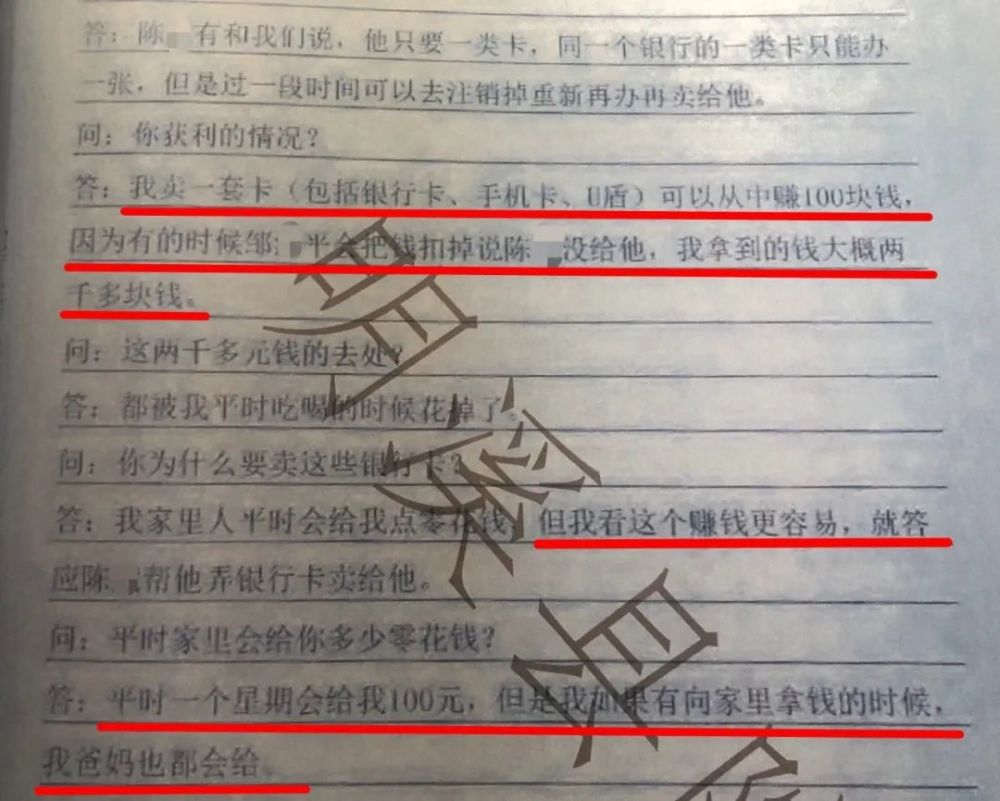 答：陈 有和我们说，他只要一类卡，同一个银行的一类卡只能办
一张，但是过一段时间可以去注销掉重新再办再卖给他。
问：你获利的情况？
答：我卖一套卡（包括银行卡、手机卡、U盾）可以从中赚100块钱，
因为有的时候邹 平会把钱扣掉说陈 没给他，我拿到的钱大概两
千多块钱。
问：这两千多元钱的去处？
答：都被我平时吃喝的时候花掉了。
问：你为什么要卖这些银行卡？
答：我家里人平时会给我点零花钱，但我看这个赚钱更容易，就答
应陈 帮他弄银行卡卖给他。
问：平时家里会给你多少零花钱？
答：平时一个星期会给我100元，但是我如果有向家里拿钱的时候，
我爸妈也都会给。